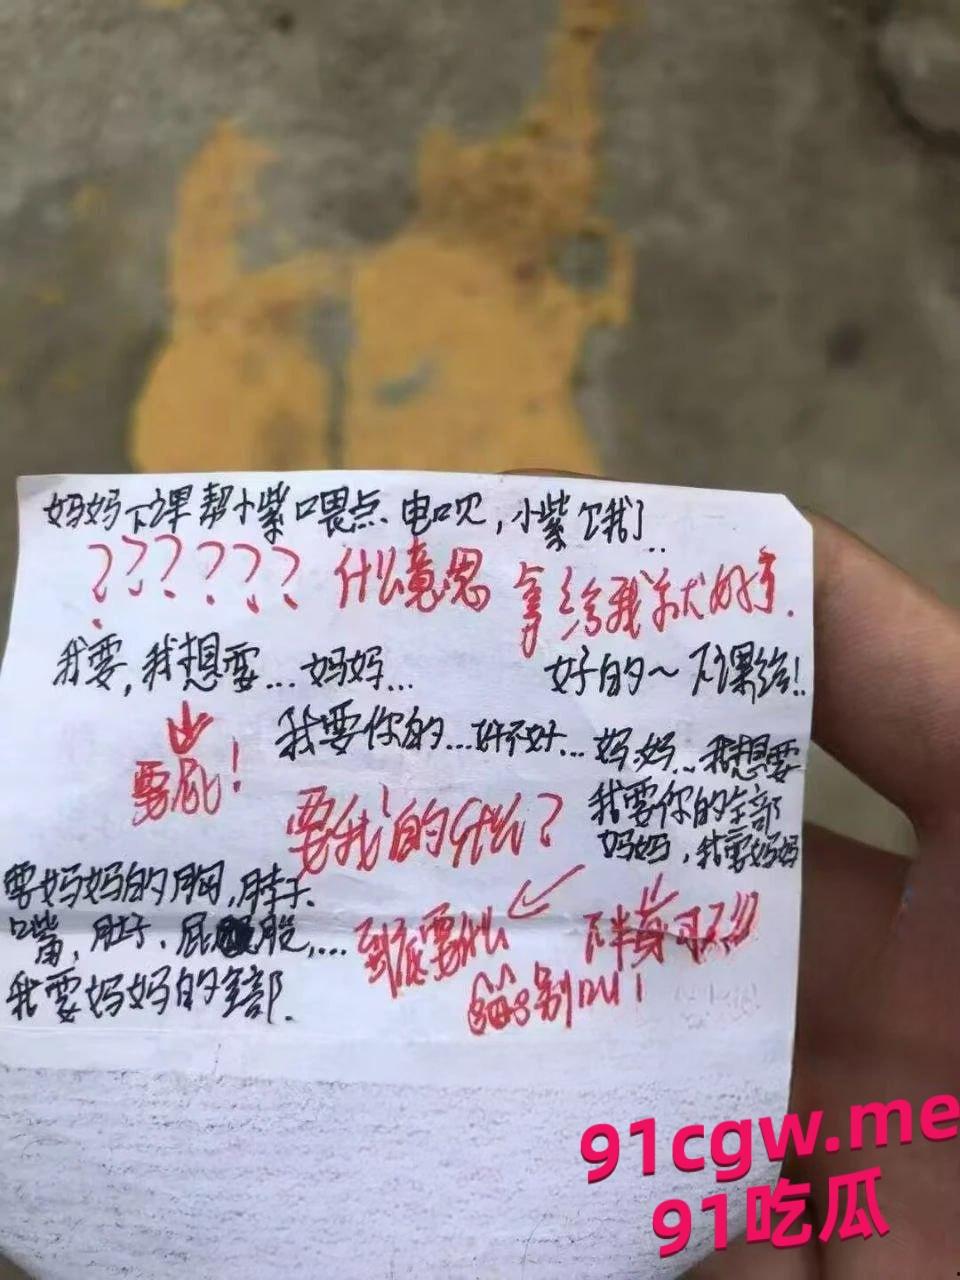 妈妈下课帮小紫喂点电呗,小紫饿了..
?????? 什么意思 拿给我就好了.
我要,我想要...妈妈... 好的~下课给!
要屁! 我要你的...好不好... 妈妈...我想要
要我的什么? 我要你的全部
妈妈,我要妈妈
要妈妈的胸,脖子.
嘴,肚子,屁股,... 到底要什么
我要妈妈的全部. 别
91cgw.me
91吃瓜